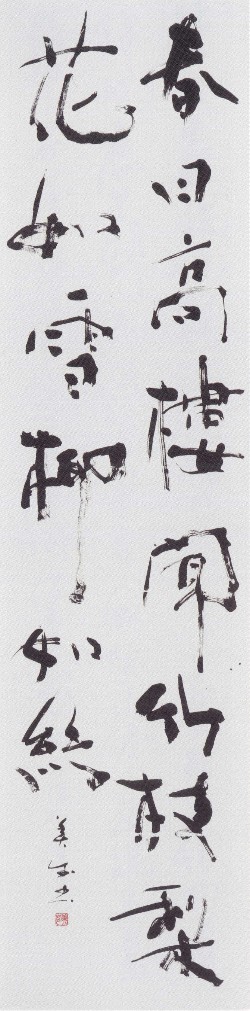 春日高樓聞竹枝梨
花如雪柳如絲